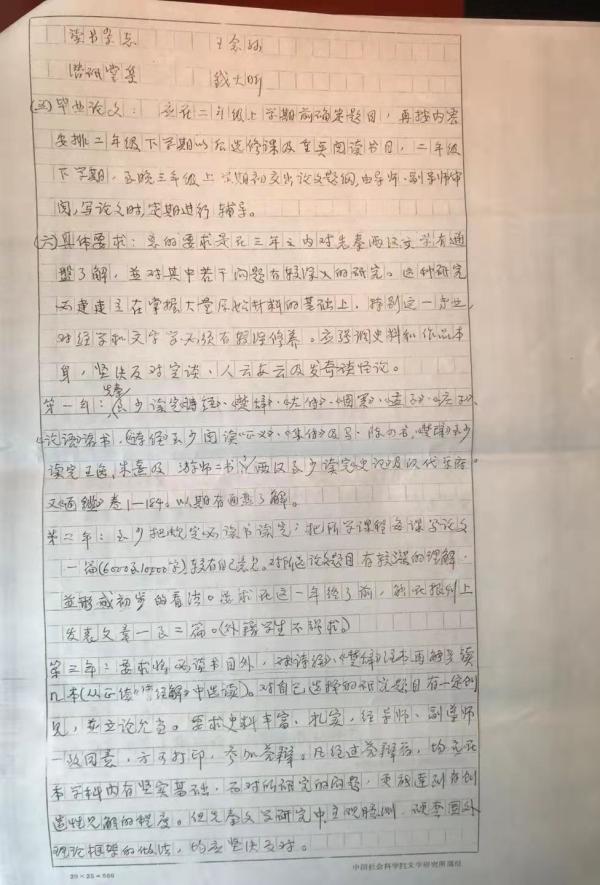 读书杂志 王念孙
潜研堂集 钱大昕
(五)毕业论文： 应在二年级上学期前确定题目，再按内容
安排二年级下学期以后选修课及重要阅读书目，二年级
下学期，至晚三年级上学期初交出论文题纲，由导师、副导师审
阅，写论文时，定期进行辅导。
(六)具体要求：总的要求是在三年之内对先秦两汉文学有通
盘了解，并对其中若干问题有较深入的研究。这种研究
必建立在掌握大量原始材料的基础上，特别这一专业，
对经学和文字学必须有较深修养。应强调史料和作品本
身，坚决反对空谈、人云亦云及发奇谈怪论。
第一年：先秦至少读完《诗经》、《楚辞》、《左传》、《国策》、《孟子》、《庄子》、
《论语》诸书，《诗经》至少阅读《正义》、《集传》及马、陈的书，《楚辞》至少
读完王逸、朱熹及游师二书；两汉至少读完《史记》及汉代乐府。
又《通鉴》卷1—184，以期有通盘了解。
第二年：至少把规定必读书读完；把所学课程每课写论文
一篇(6000至10000字)，较有自己意见。对所选论文题目有较强的理解，
并形成初步的看法。要求在这一年终了前，能在报刊上
发表文章一至二篇。(外籍学生不强求)
第三年：要求将必读书目外，《诗经》、《楚辞》注书再解读
几本(从正续《清经解》中选读)。对自己选择的研究题目有一定创
见，并立论允当。要求史料丰富、扎实，经导师、副导师
一致同意，方可打印，参加答辩。凡经过答辩者，均应在
本学科内有坚实基础，而对所研究的问题，更被达到有创
造性见解的程度。但先秦文学研究中，主观臆测，硬套国外
理论框架的做法，均应坚决反对。
20×25=500
中国社会科学院文学研究所稿纸